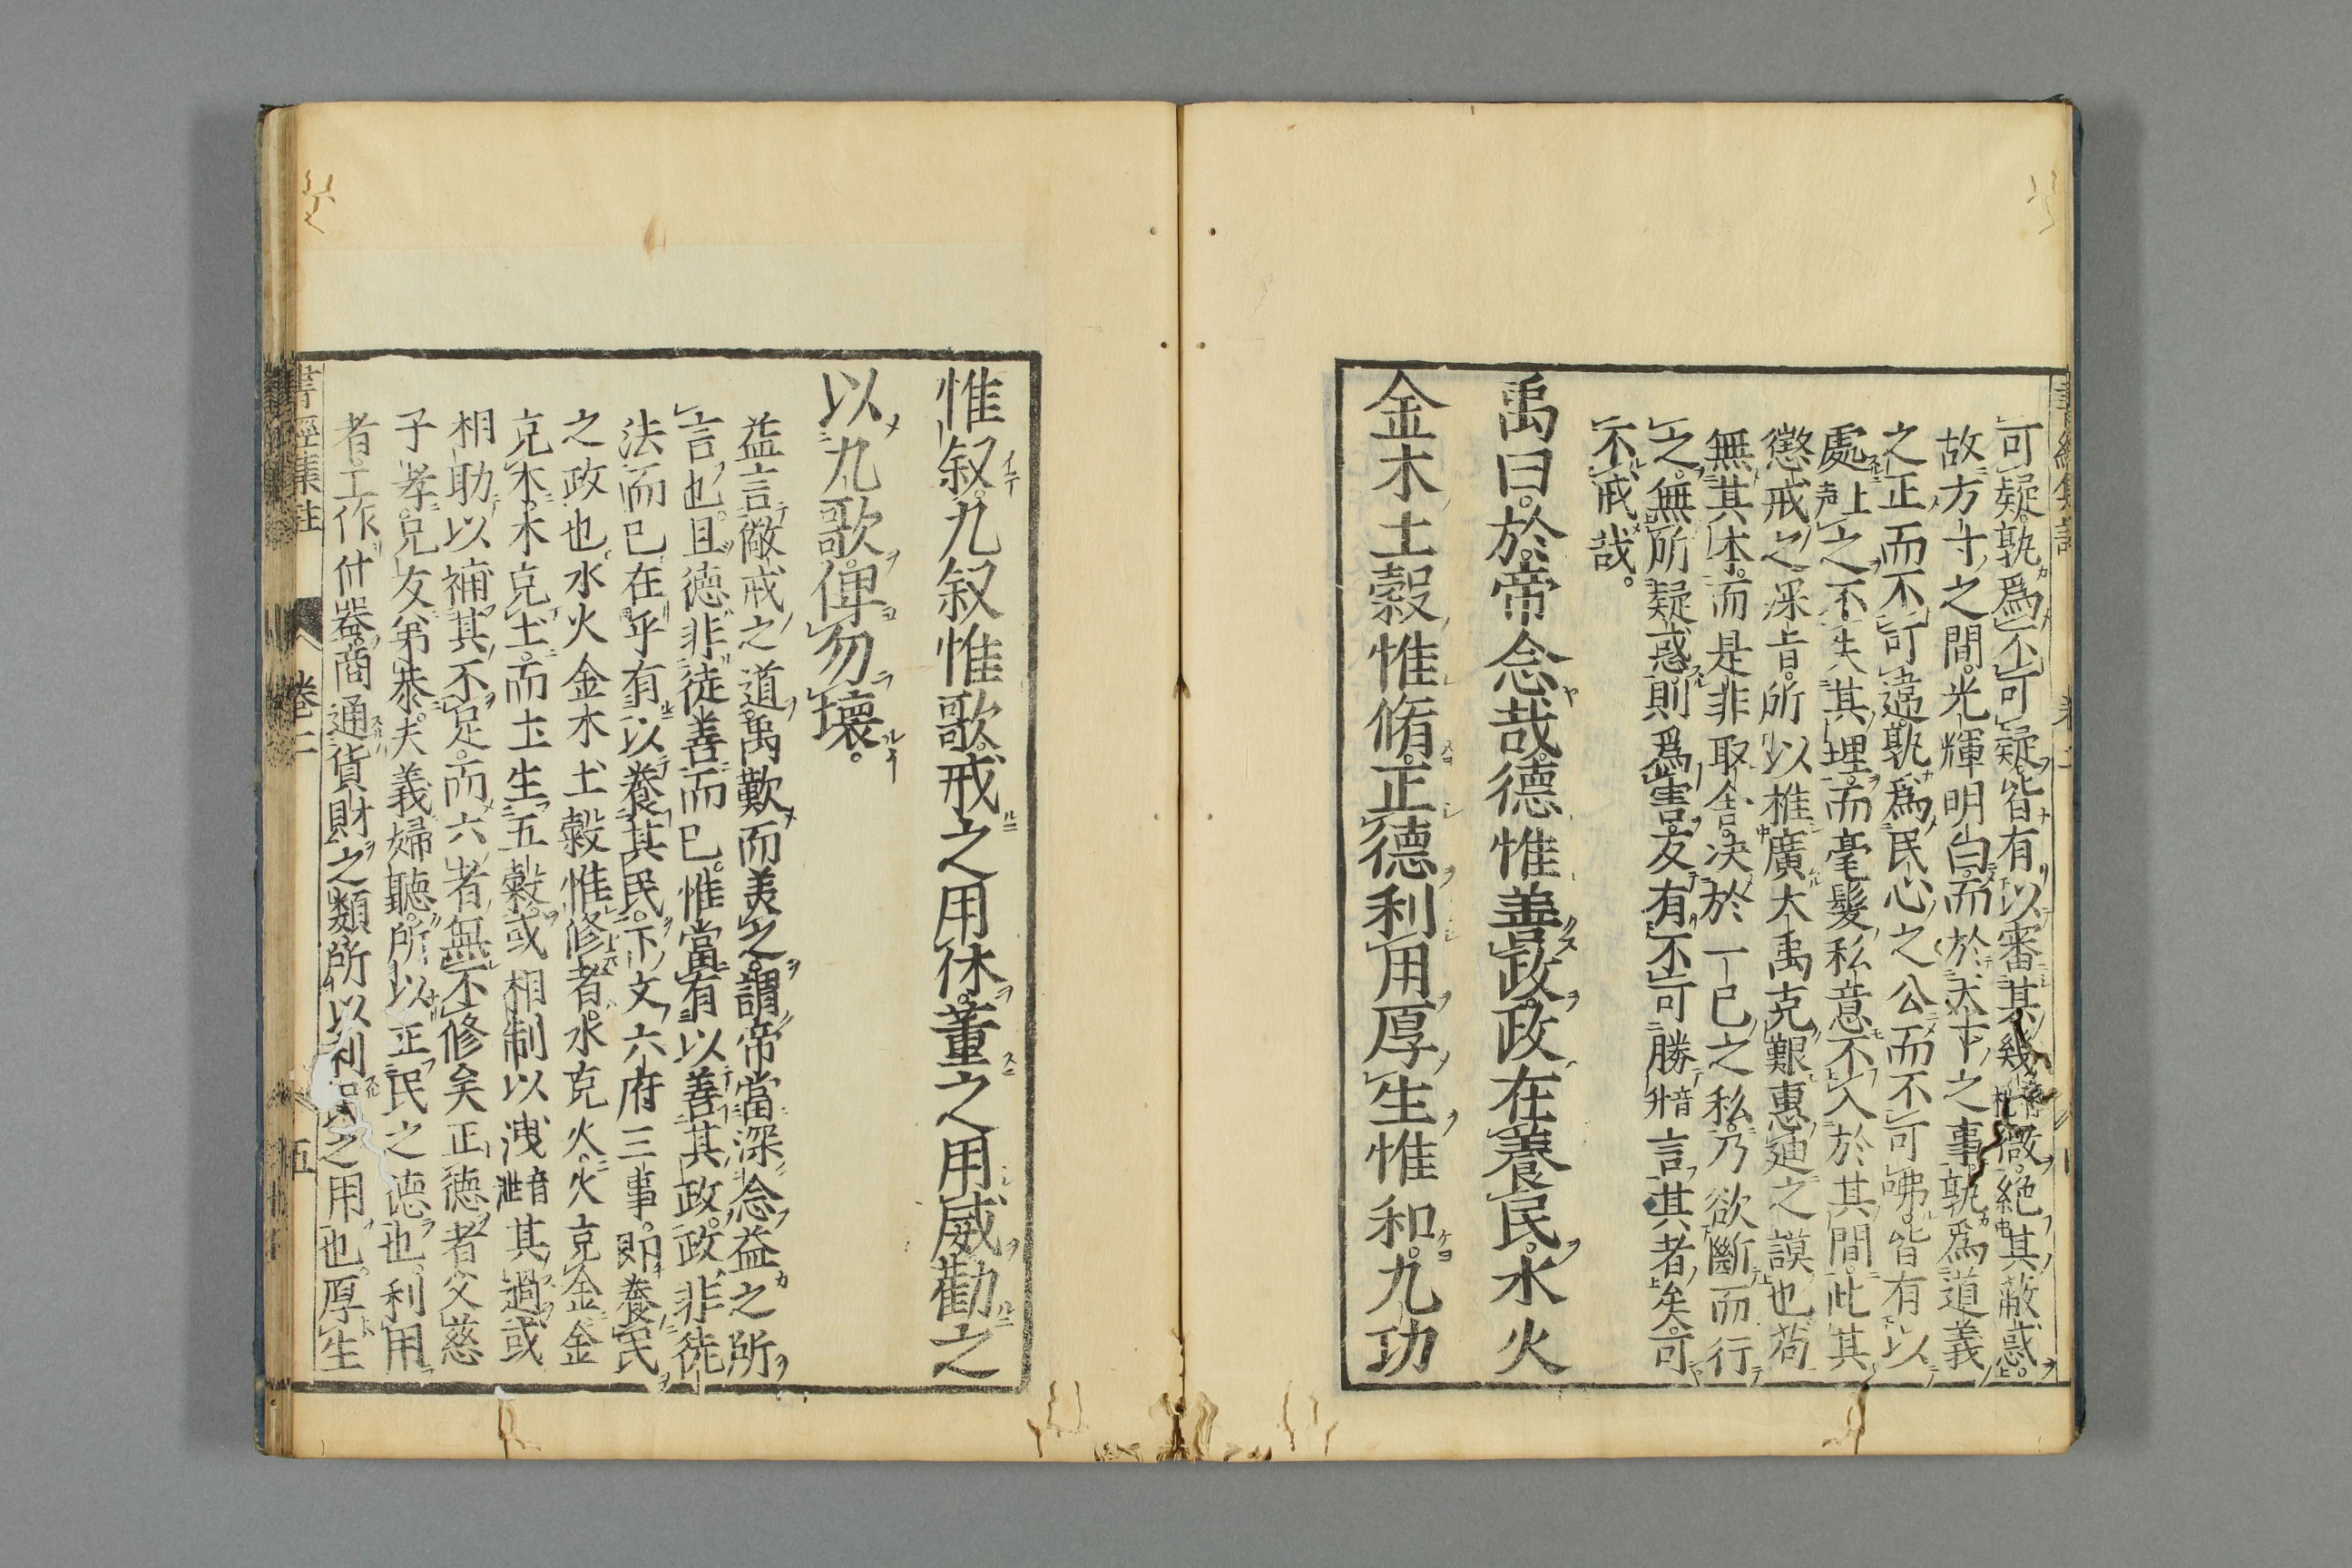 可疑。孰爲不可疑。皆有以審其幾微。絶其蔽惑。
故方寸之間。光輝明白。而於天下之事。孰爲道義
之正而不可違。孰爲民心之公而不可咈。皆有以
處上声之不失其理。而毫髮私意不入於其間。此其
懲戒之深旨。所以推廣大禹克艱惠廸之謨也。苟
無其本。而是非取舍。決於一己之私。乃欲斷而行
之。無所疑惑。則爲害。友有不可勝音升言其者矣。可
不戒哉。
禹曰。於帝念哉。德惟善政。政在養民。水火
金木土穀惟脩。正德利用厚生惟和。九功
惟叙。九叙惟歌。戒之用休。董之用威。勸之
以九歌。俾勿壞。
益言儆戒之道。禹歎而美之。謂帝當深念益之所
言也。且德非徒善而已。惟當有以善其政。政非徒
法而已。在乎有以養其民。下文六府三事。即養民
之政也。水火金木土穀惟修者。水克火。火克金。金
克木。木克土。而土生五穀。或相制以洩音泄其過。或
相助以補其不足。而六者無不修矣。正德者。父慈
子孝。兄友弟恭。夫義婦聽。所以正民之德也。利用
者。工作什器。商通貨財之類。所以利民之用也。厚生
書經集註
卷二
五